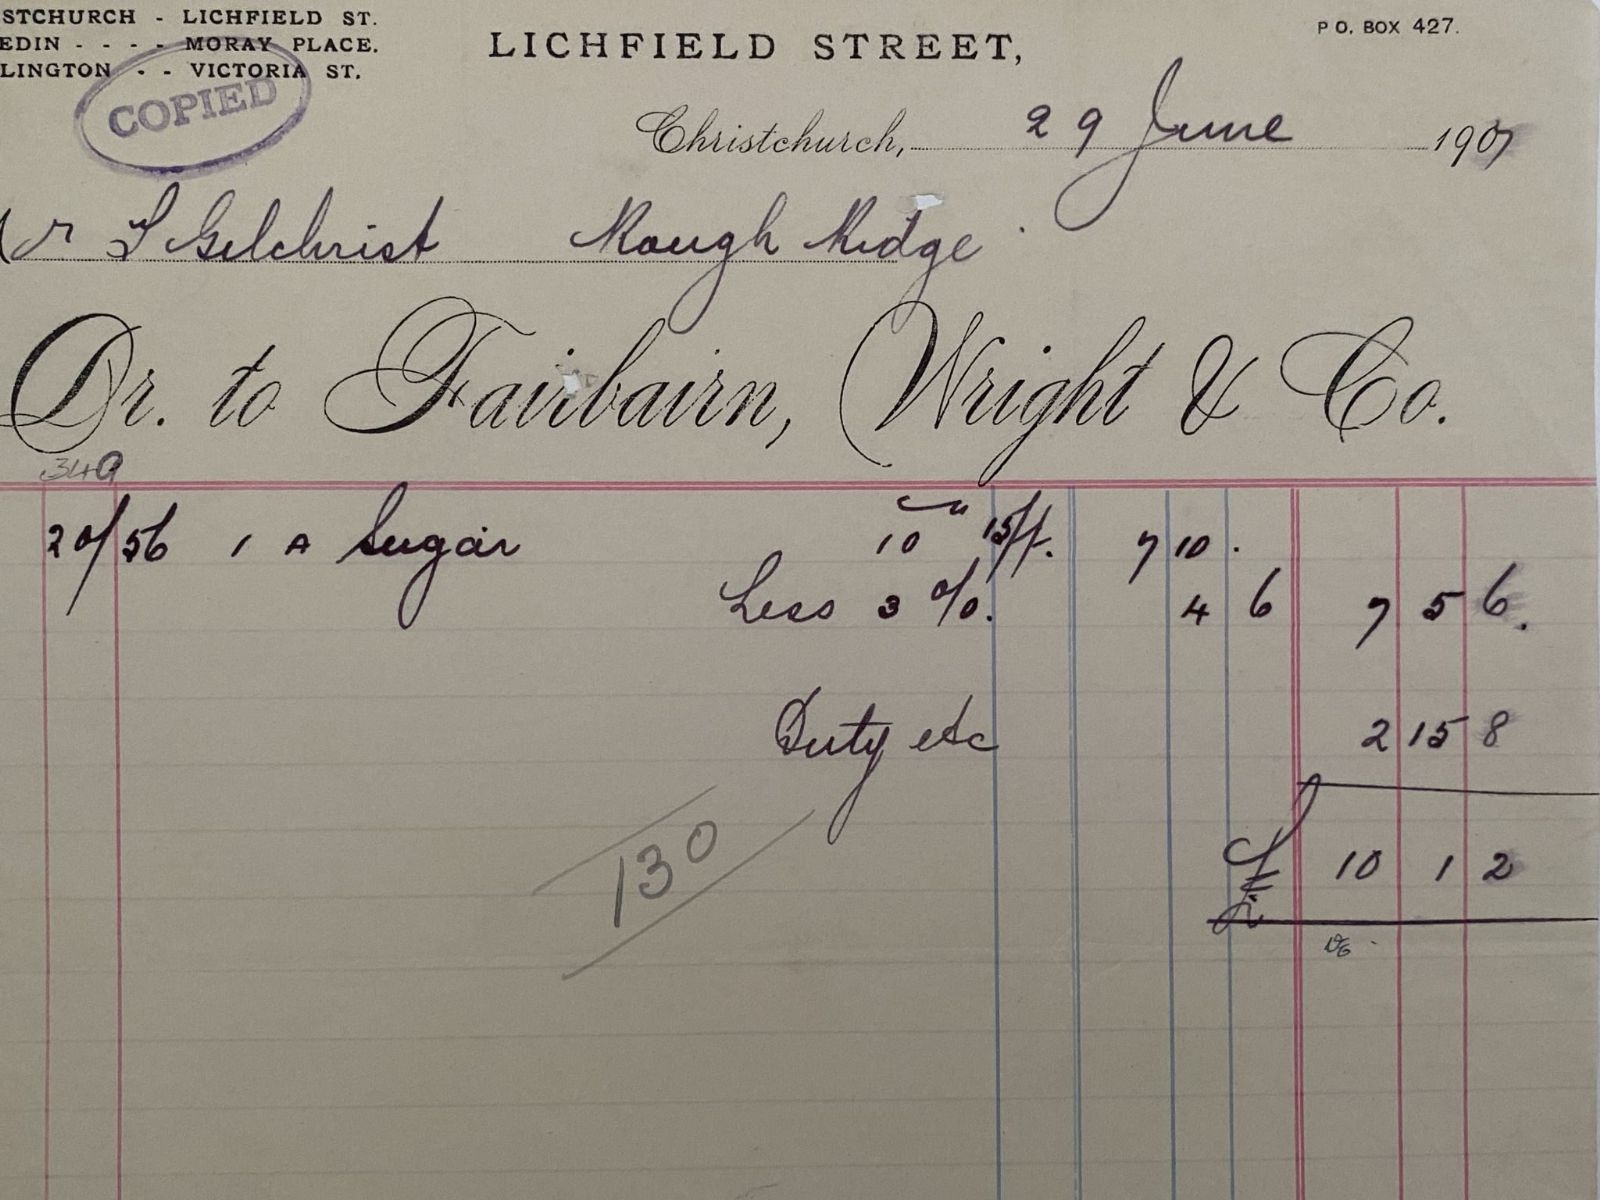 STCHURCH - LICHFIELD ST.
EDIN - - - - MORAY PLACE.
LINGTON - - VICTORIA ST.
COPIED
LICHFIELD STREET,
P O. BOX 427.
Christchurch, 29 June 1907
Mr J Gilchrist Rough Ridge
Dr. to Fairbairn, Wright & Co.
349
20/56 1 A Sugar 10 15/ 7 10 .
Less 3 %. 4 6 7 5 6.
Duty etc 2 15 8
130
£ 10 1 2